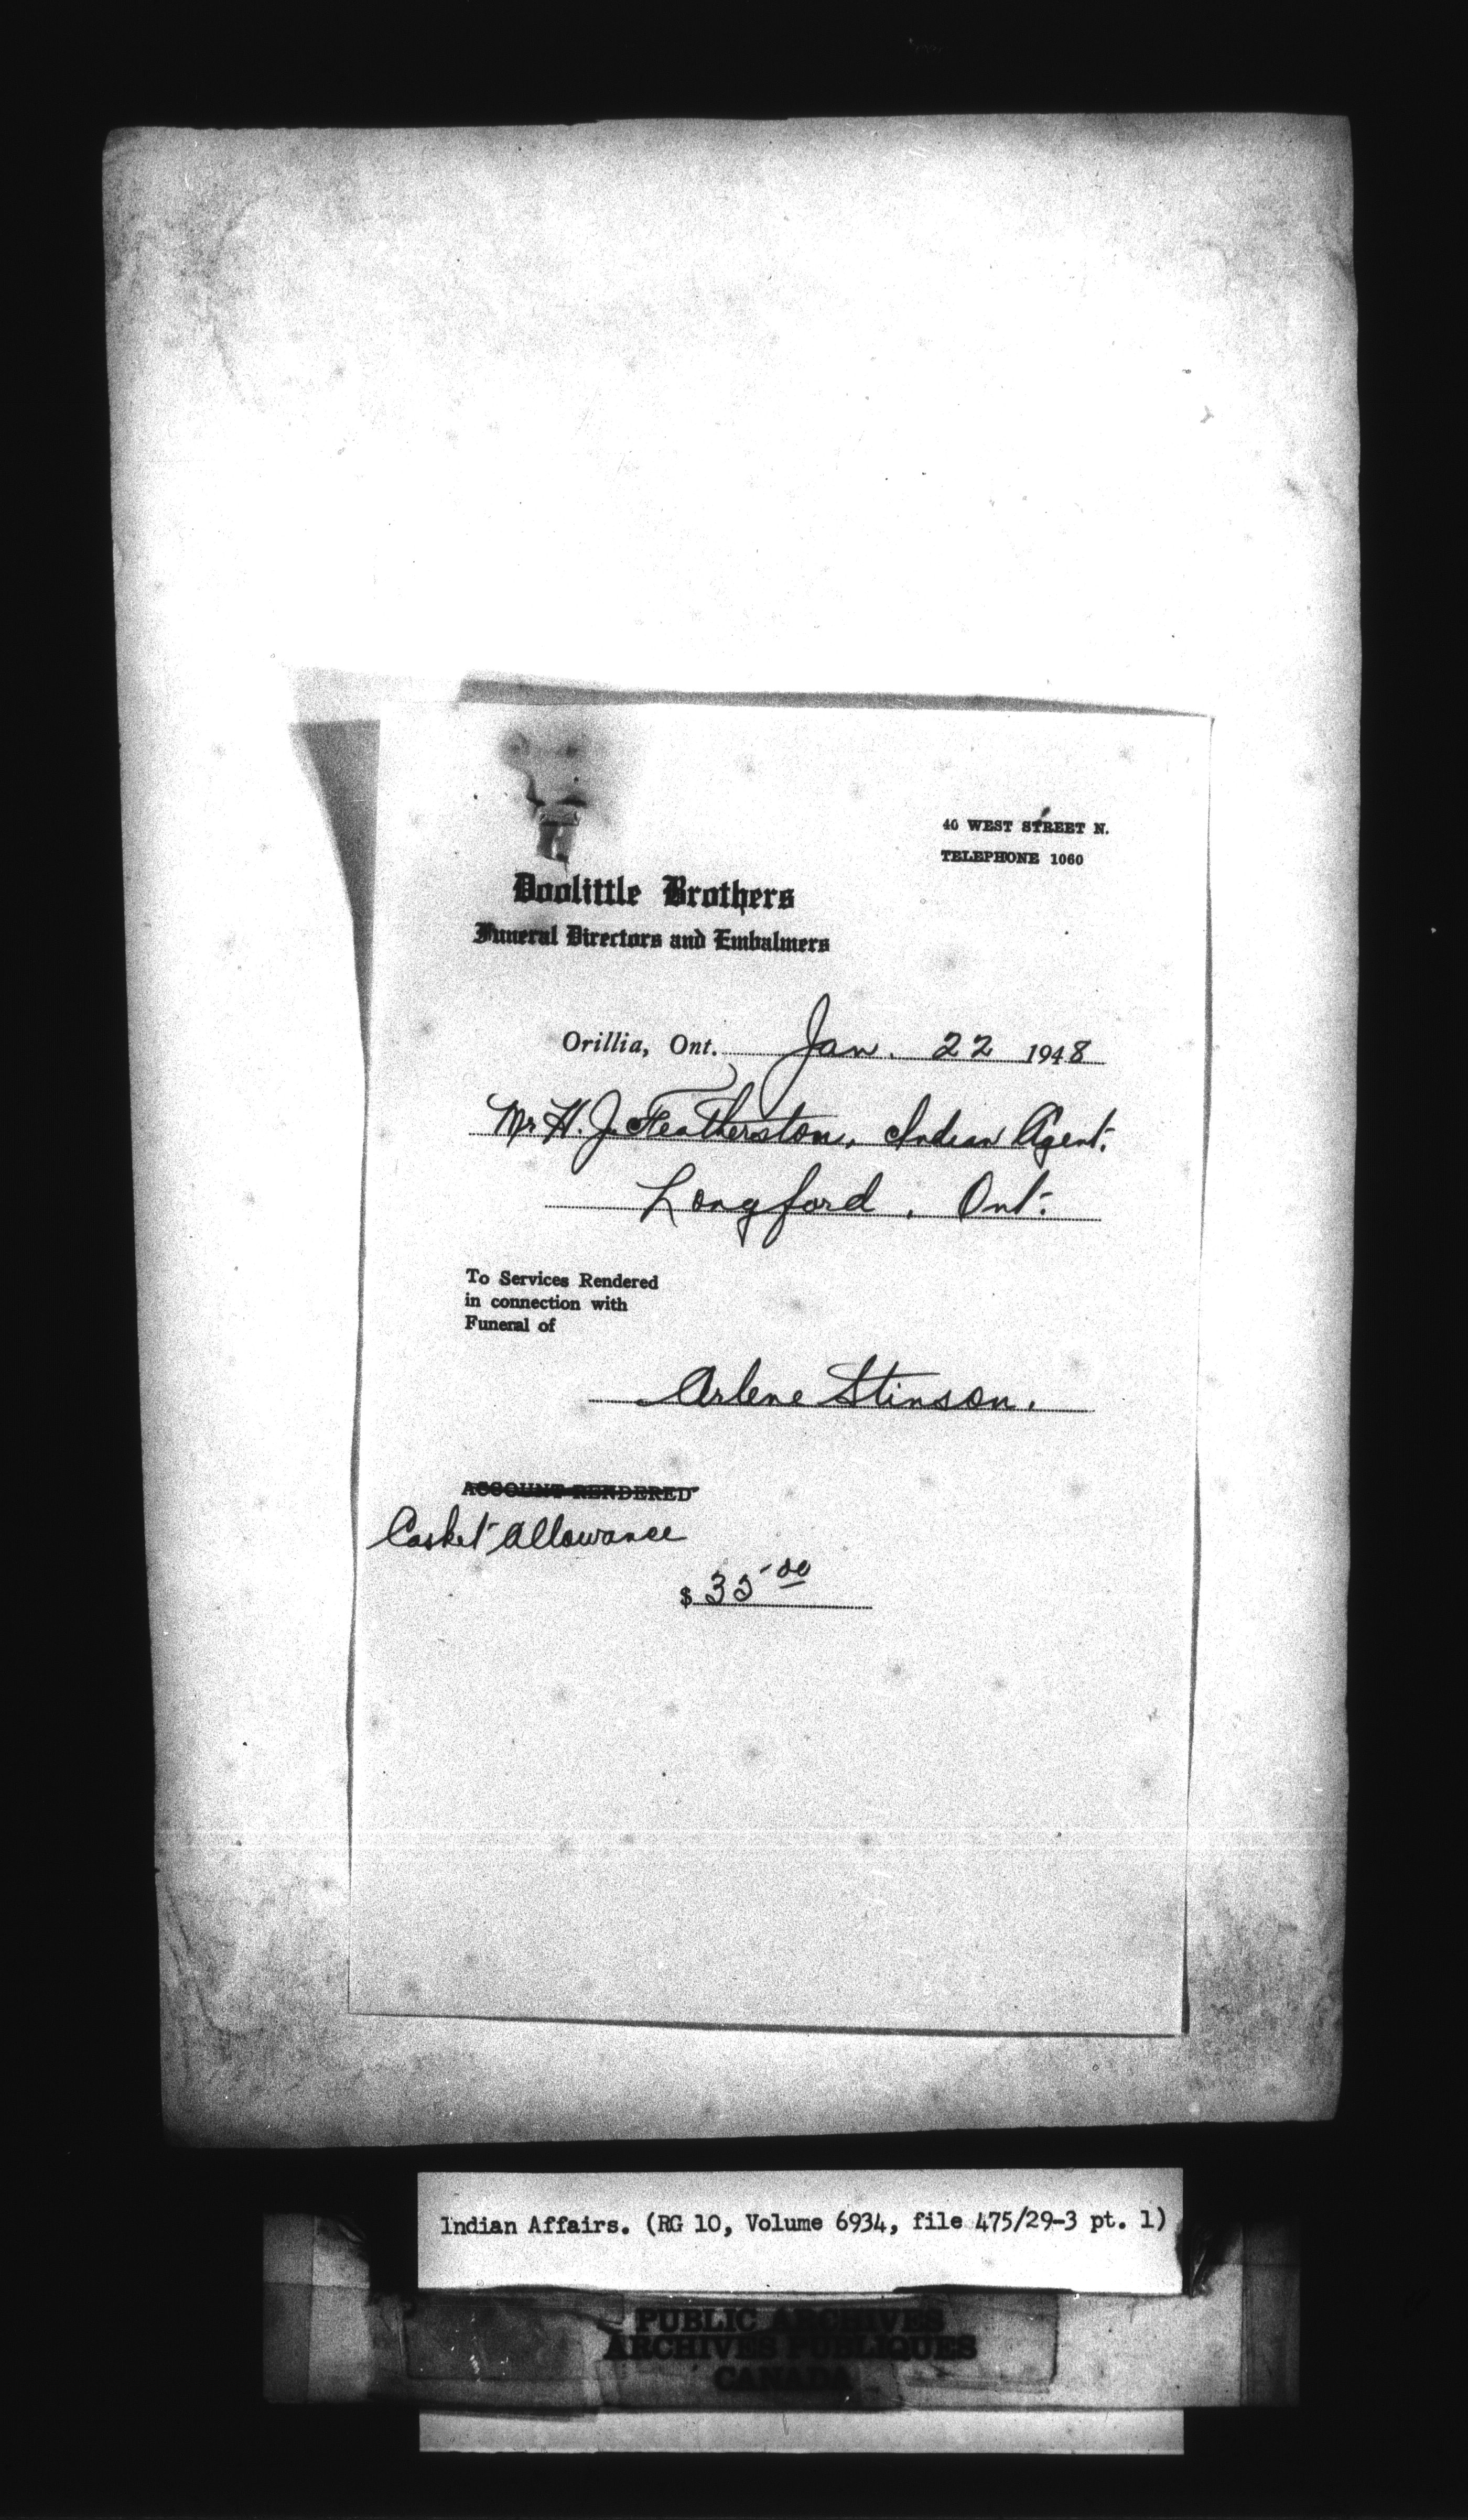 40 WEST STREET N.
TELEPHONE 1060
Doolittle Brothers
Funeral Directors and Embalmers
Orillia, Ont. Jan. 22 1948
Mr H. J. Featherston, Indian Agent.
Longford, Ont.
To Services Rendered
in connection with
Funeral of
Arlene Stinson.
ACCOUNT RENDERED
Casket Allowance
$35.00
Indian Affairs. (RG 10, Volume 6934, file 475/29-3 pt. 1)
PUBLIC ARCHIVES
ARCHIVES PUBLIQUES
CANADA